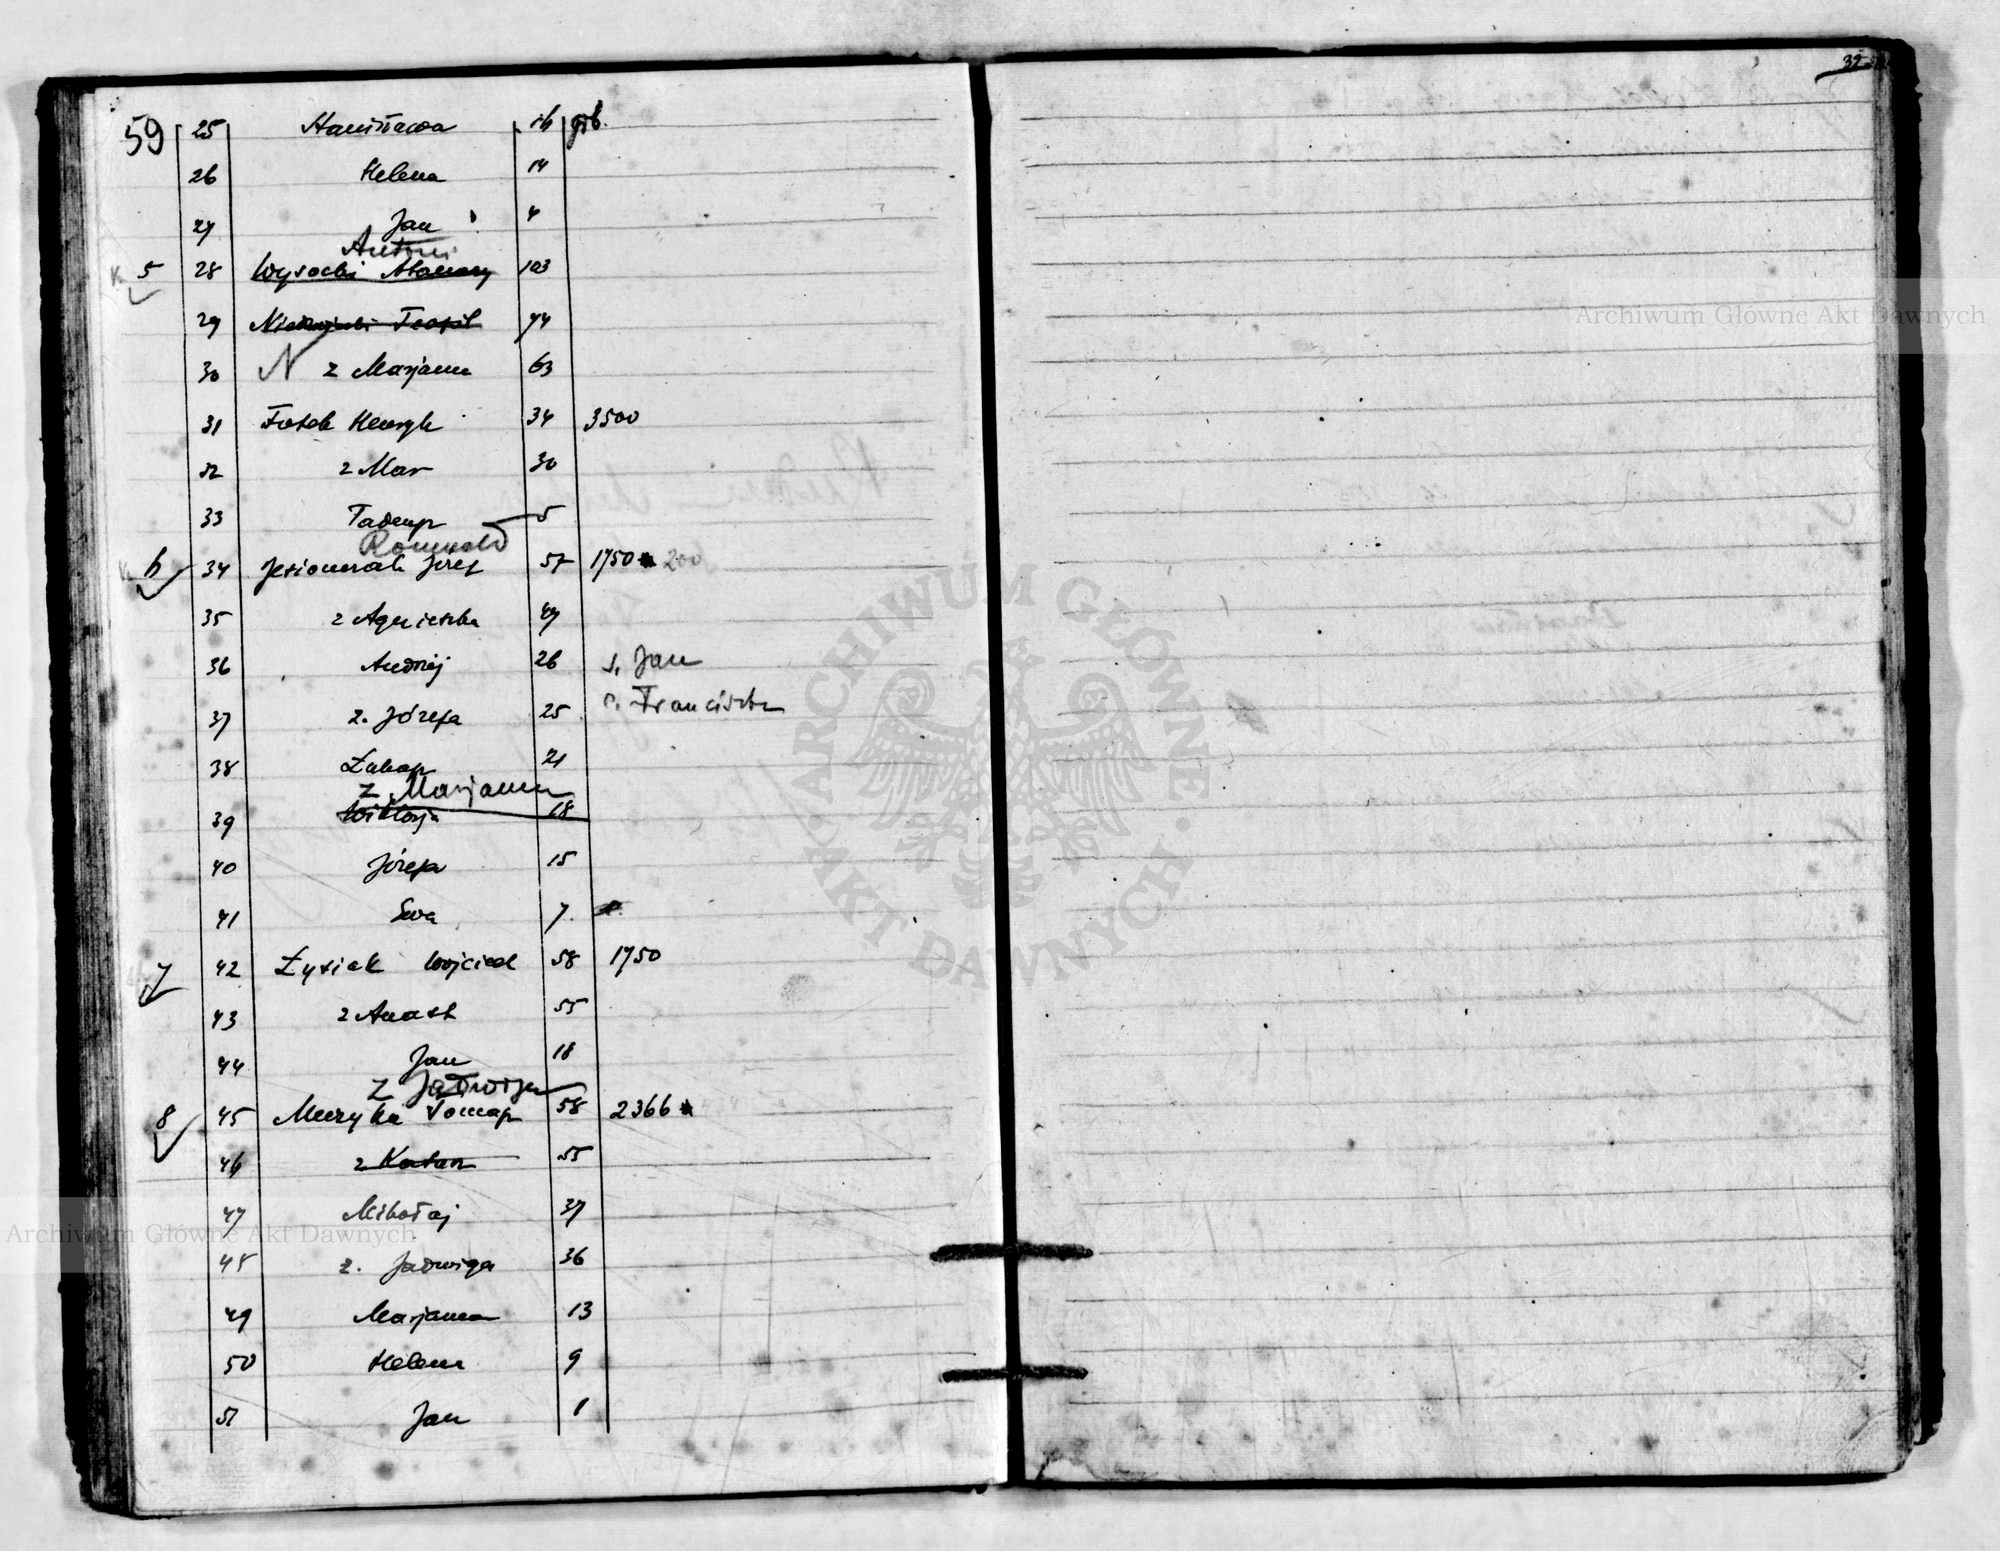 39
59 25 Stanisława 16 grb.
26 Helena 14
27 Jan 4
Antoni
5 28 Wysocki 103
29 Teofil 74
30 N z Marjanna 63
31 Henryk 34 3500
32 z Mar 30
33 Tadeusz 5
Romuald
6 34 Józef 57 1750 200
35 z Agnieszka 47
36 Andrzej 26 s. Jan
37 z. Józefa 25 Franciszka
38 Łukasz 21
z Marjanna
39 Wiktorja 18
40 Józefa 15
41 Ewa 7
7 42 Łysiak Wojciech 58 1750
43 z Anast 55
44 Jan 18
z Jadwiga
8 45 Muzyka Tomasz 58 2366
46 z Katarz 55
47 Mikołaj 37
48 z. Jadwiga 36
49 Marjanna 13
50 Helena 9
51 Jan 1
Archiwum Główne Akt Dawnych
Archiwum Główne Akt Dawnych
ARCHIWUM GŁÓWNE
AKT DAWNYCH